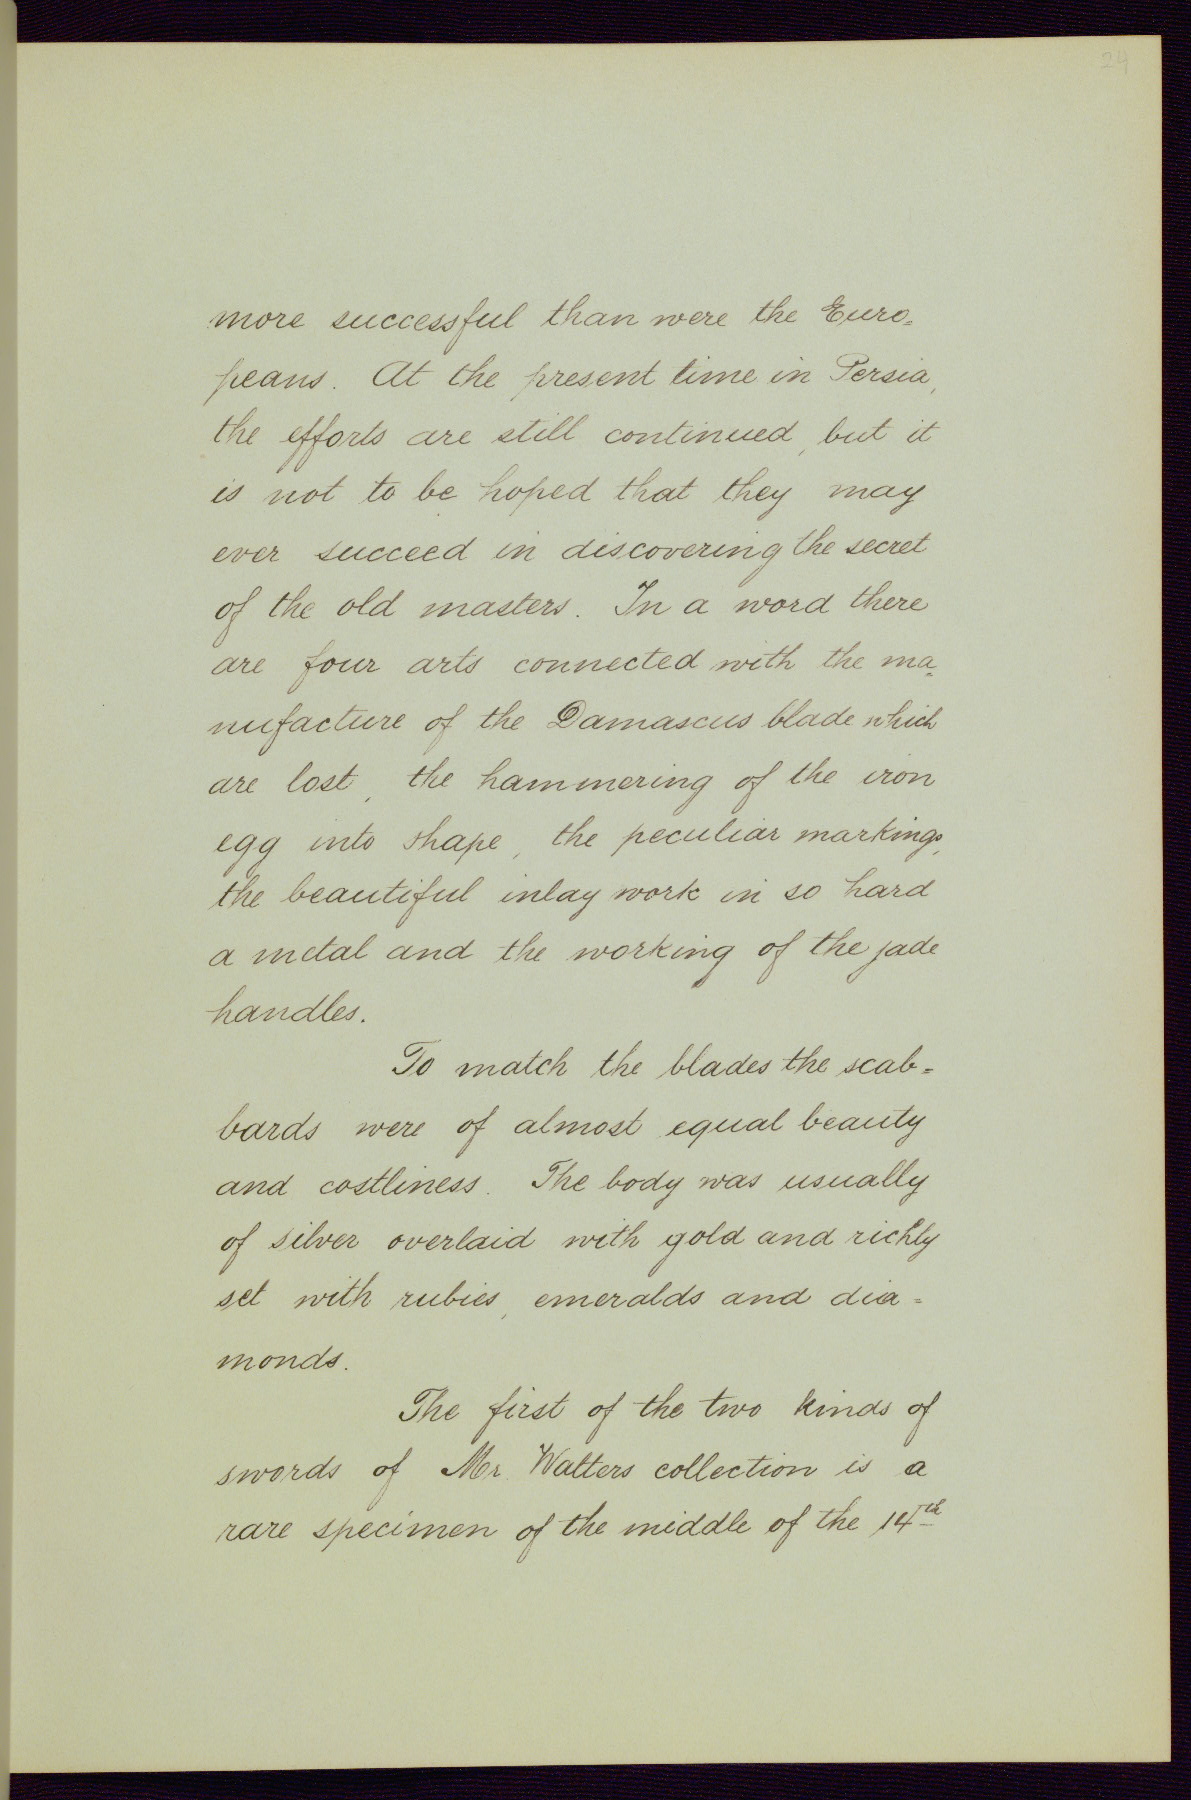 24
more successful than were the Euro=
peans. At the present time in Persia,
the efforts are still continued, but it
is not to be hoped that they may
ever succeed in discovering the secret
of the old masters. In a word there
are four arts connected with the ma=
nufacture of the Damascus blade which
are lost, the hammering of the iron
egg into shape, the peculiar markings,
the beautiful inlay work in so hard
a metal and the working of the jade
handles.
To match the blades the scab=
bards were of almost equal beauty
and costliness. The body was usually
of silver overlaid with gold and richly
set with rubies, emeralds and dia=
monds.
The first of the two kinds of
swords of Mr. Walters collection is a
rare specimen of the middle of the 14th